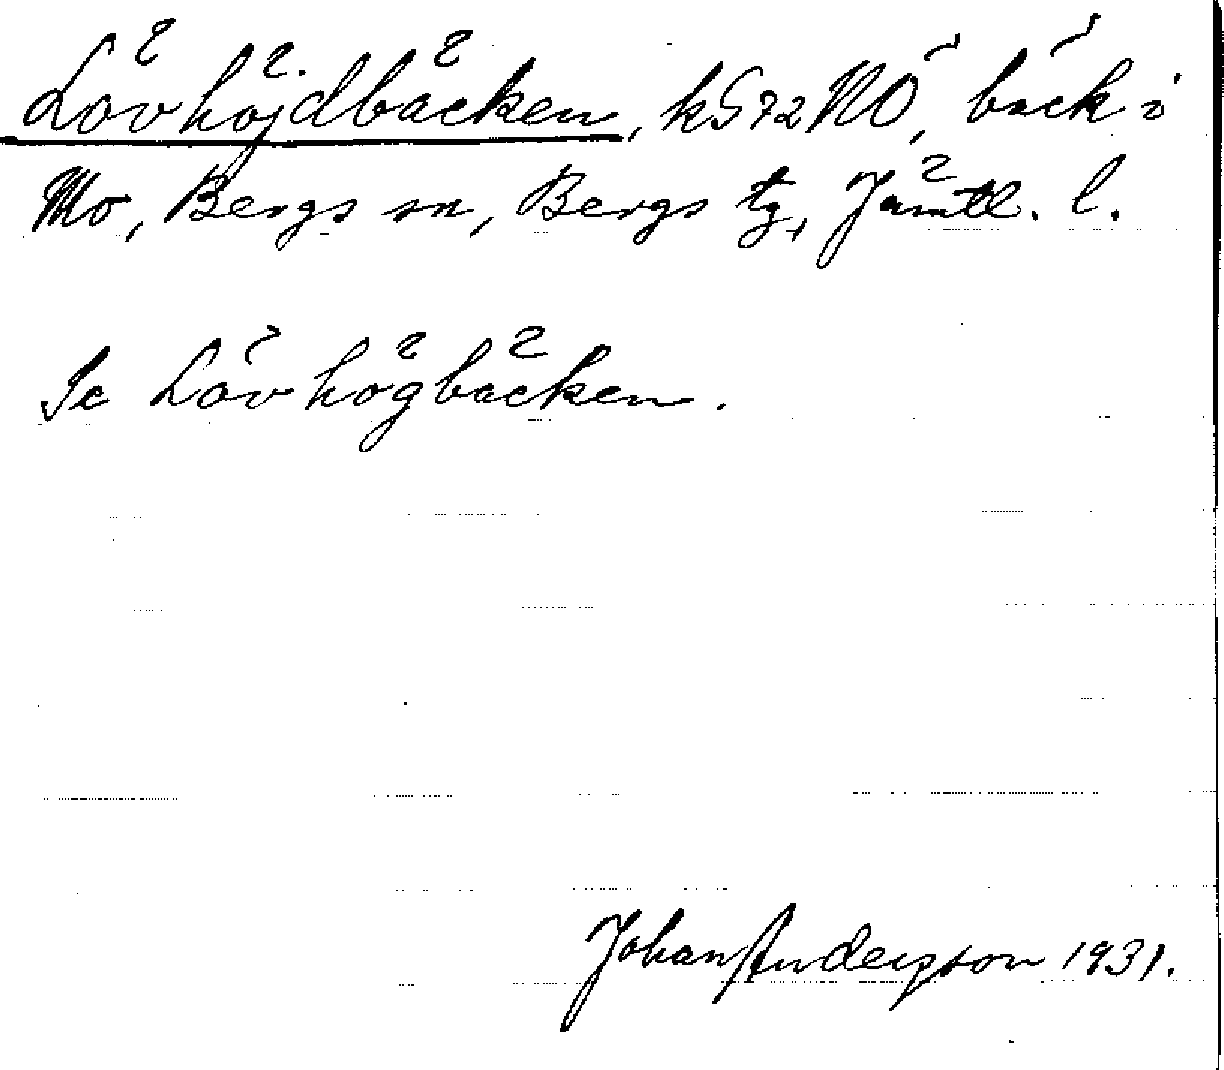 Lövhöjdbäcken, k572NÖ, bäck i
Mo, Bergs sn, Bergs tg, Jämtl. l.
Se Lövhögbäcken.
Johan Anderson 1931.